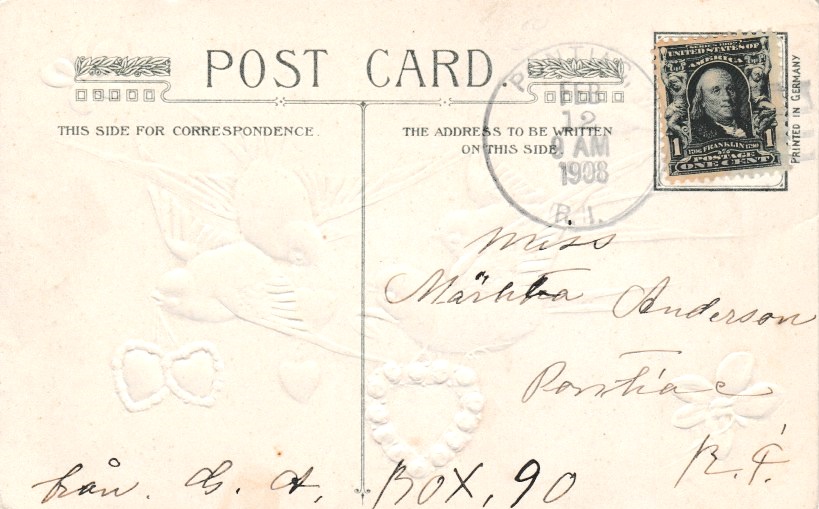 POST CARD
THIS SIDE FOR CORRESPONDENCE.
THE ADDRESS TO BE WRITTEN
ON THIS SIDE
PONTIAC
FEB
12
9 AM
1908
R.I.
SERIES 1902
UNITED STATES OF
AMERICA
1706 FRANKLIN 1790
1 1
POSTAGE
ONE CENT
PRINTED IN GERMANY
Miss
Märhta Anderson
Pontiac
R.I.
från. G. A. BOX, 90